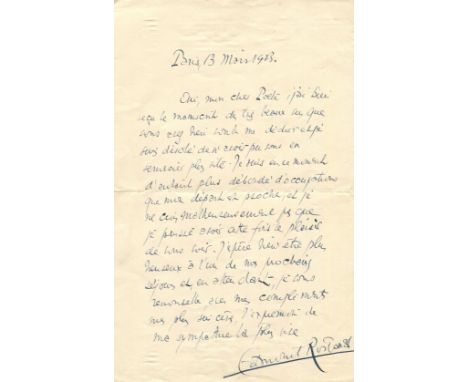 Paris, 13 Mars 1903.
Oui, mon cher Poète, j'ai bien
reçu le manuscrit de très beaux vers que
vous avez bien voulu me dédier et je
suis désolé de n'avoir pu vous en
remercier plus vite. Je suis en ce moment
d'autant plus débordé d'occupations
que mon départ est proche, et je
ne crois malheureusement pas que
je puisse avoir cette fois le plaisir
de vous voir. J'espère bien être plus
heureux à l'un de mes prochains
séjours et, en attendant, je vous
renouvelle, avec mes compliments
les plus sincères, l'expression de
ma sympathie la plus vive
Edmond Rostand